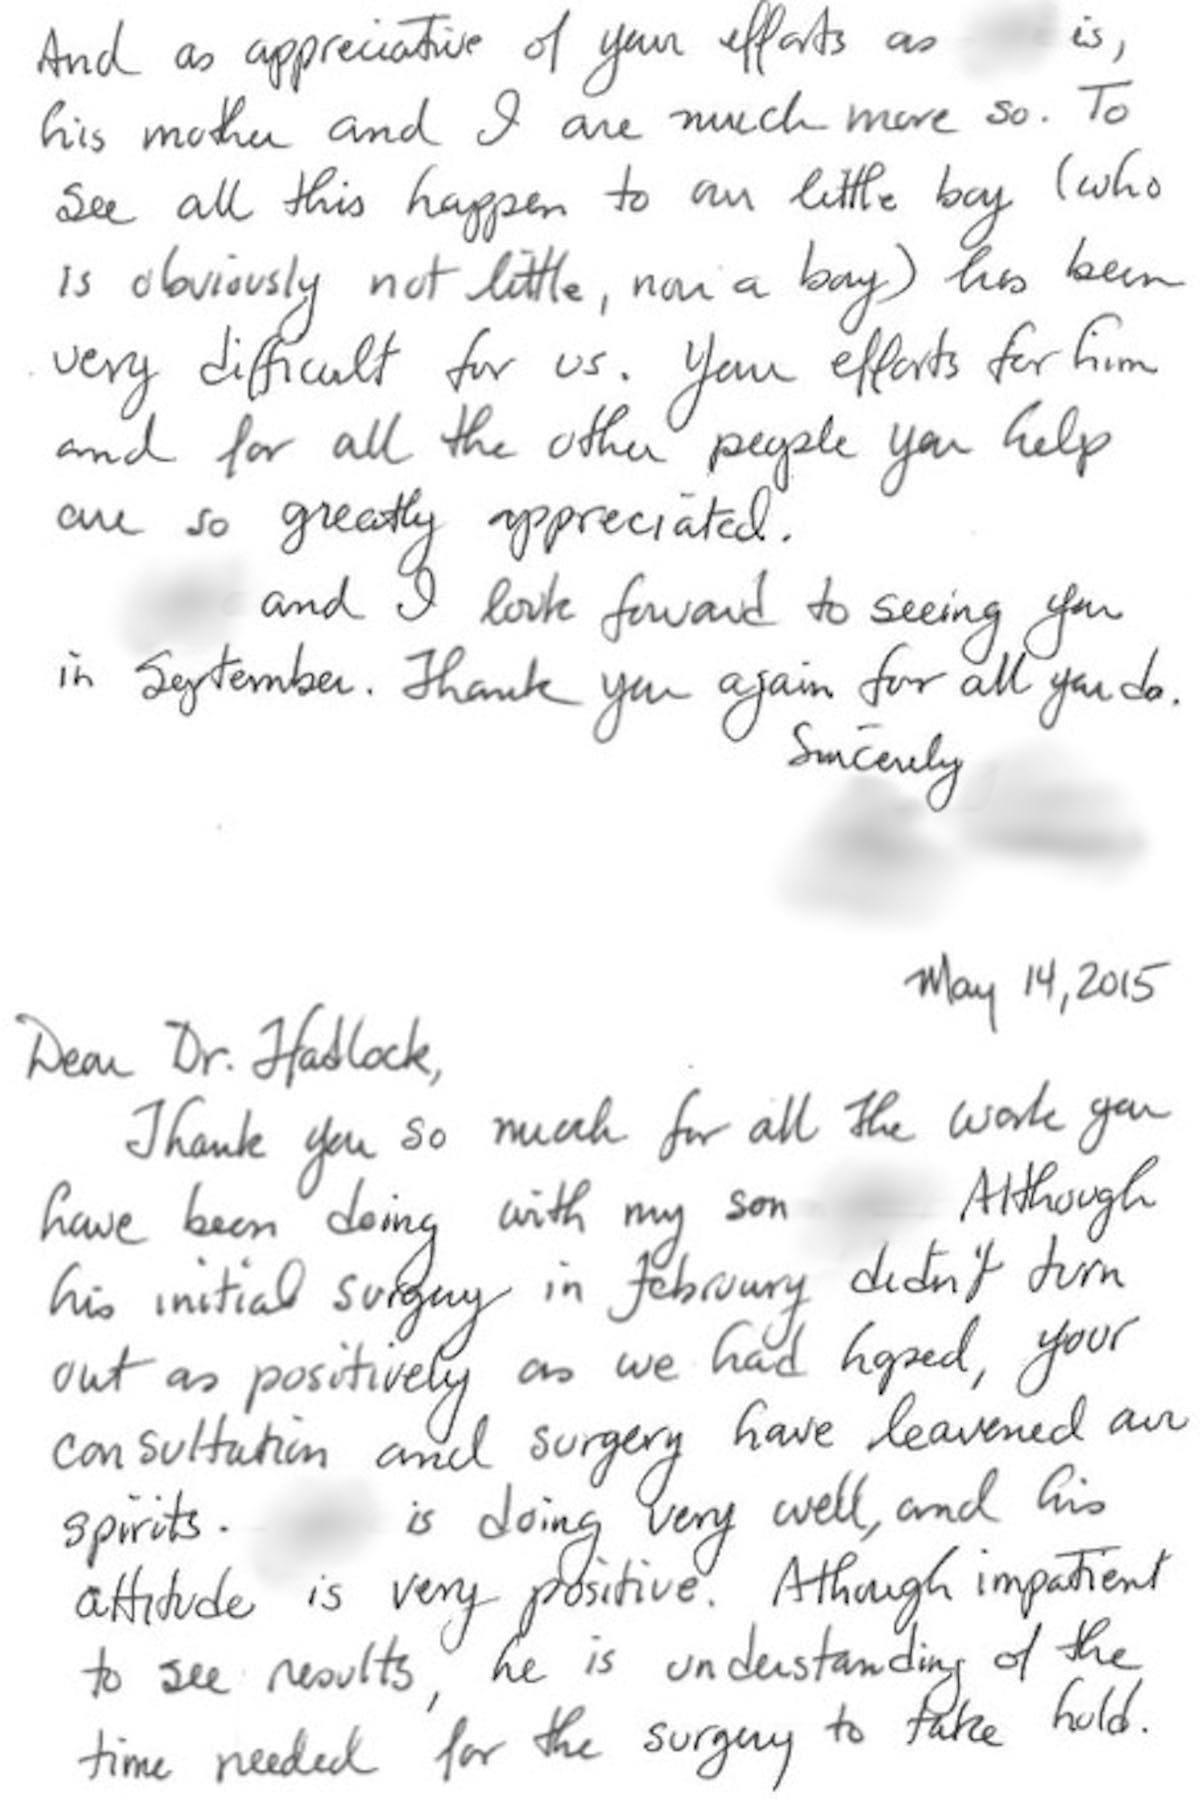 And as appreciative of your efforts as is,
his mother and I are much more so. To
see all this happen to our little boy (who
is obviously not little, nor a boy) has been
very difficult for us. Your efforts for him
and for all the other people you help
are so greatly appreciated.
and I look foward to seeing you
in September. Thank you again for all you do.
Sincerely
May 14, 2015
Dear Dr. Hadlock,
Thank you so much for all the work you
have been doing with my son Although
his initial surgery in February didn't turn
out as positively as we had hoped, your
consultation and surgery have leavened our
spirits. is doing very well, and his
attitude is very positive. Athough impatient
to see results, he is understanding of the
time needed for the surgery to take hold.